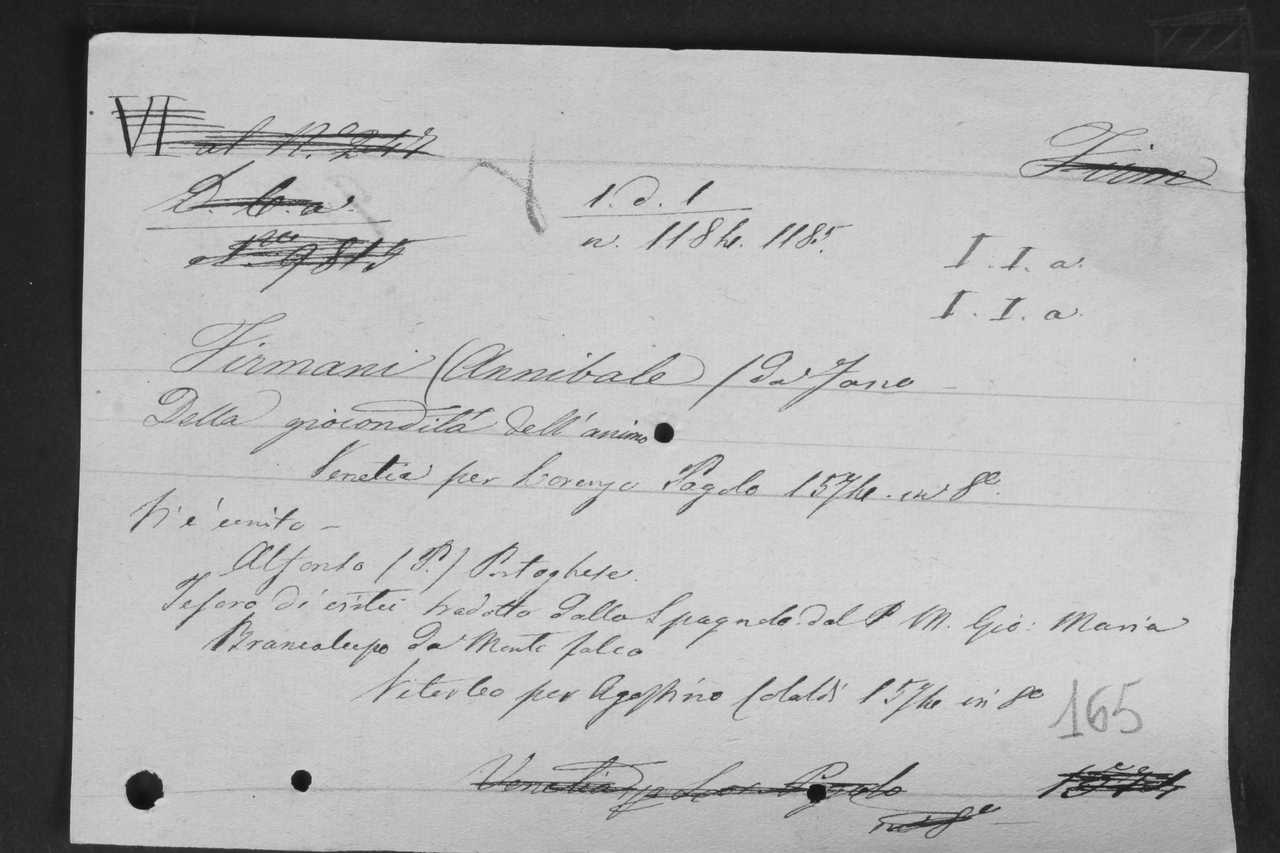 VI al N.º 247
Firm
D. b. a.
1. d. 1
n. 9815
n. 1184. 1185.
I. I. a.
I. I. a.
Firmani (Annibale) da Fano
Della giocondità dell'animo
Venetia per Lorenzo Pegolo 1574. in 8º.
Vi è unito -
Alfonso (P.) Portoghese.
Tesoro di virtù tradotto dallo Spagnolo dal P. M. Gio: Maria
Brancalupo da Monte falco
Viterbo per Agostino Colaldi 1574 in 8º
165
Venetia p Lor Pegolo 1574
in 8º